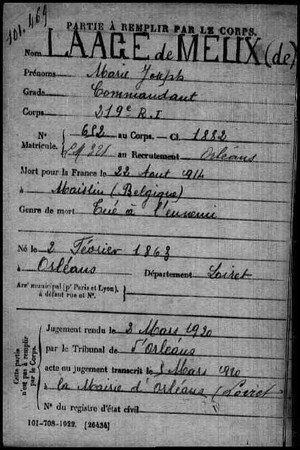 101.469
PARTIE À REMPLIR PAR LE CORPS.
Nom LAAGE de MEUX (de)
Prénoms Marie Joseph
Grade Commandant
Corps 219e R.I
N° 652 au Corps. - Cl 1882
Matricule. au Recrutement Orléans
Mort pour la France le 22 Aout 914
à Maissin (Belgique)
Genre de mort Tué à l'ennemi
Né le 2 Février 1863
à Orléans Département Loiret
Arrt municipal (pr Paris et Lyon),
à défaut rue et N°.
Cette partie
n'est pas à remplir
par le Corps.
Jugement rendu le 3 Mars 1920
par le Tribunal de d'Orléans
acte ou jugement transcrit le Mars 920
à la Mairie d'Orléans (Loiret)
N° du registre d'état civil
101-708-1922. [26434]